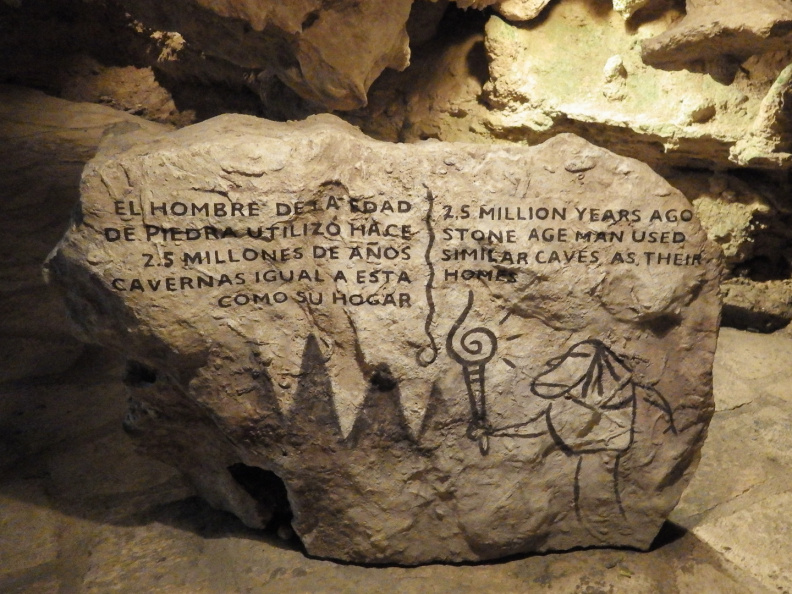 EL HOMBRE DE LA EDAD
DE PIEDRA UTILIZÓ HACE
2.5 MILLONES DE AÑOS
CAVERNAS IGUAL A ESTA
COMO SU HOGAR
2.5 MILLION YEARS AGO
STONE AGE MAN USED
SIMILAR CAVES, AS, THEIR
HOMES